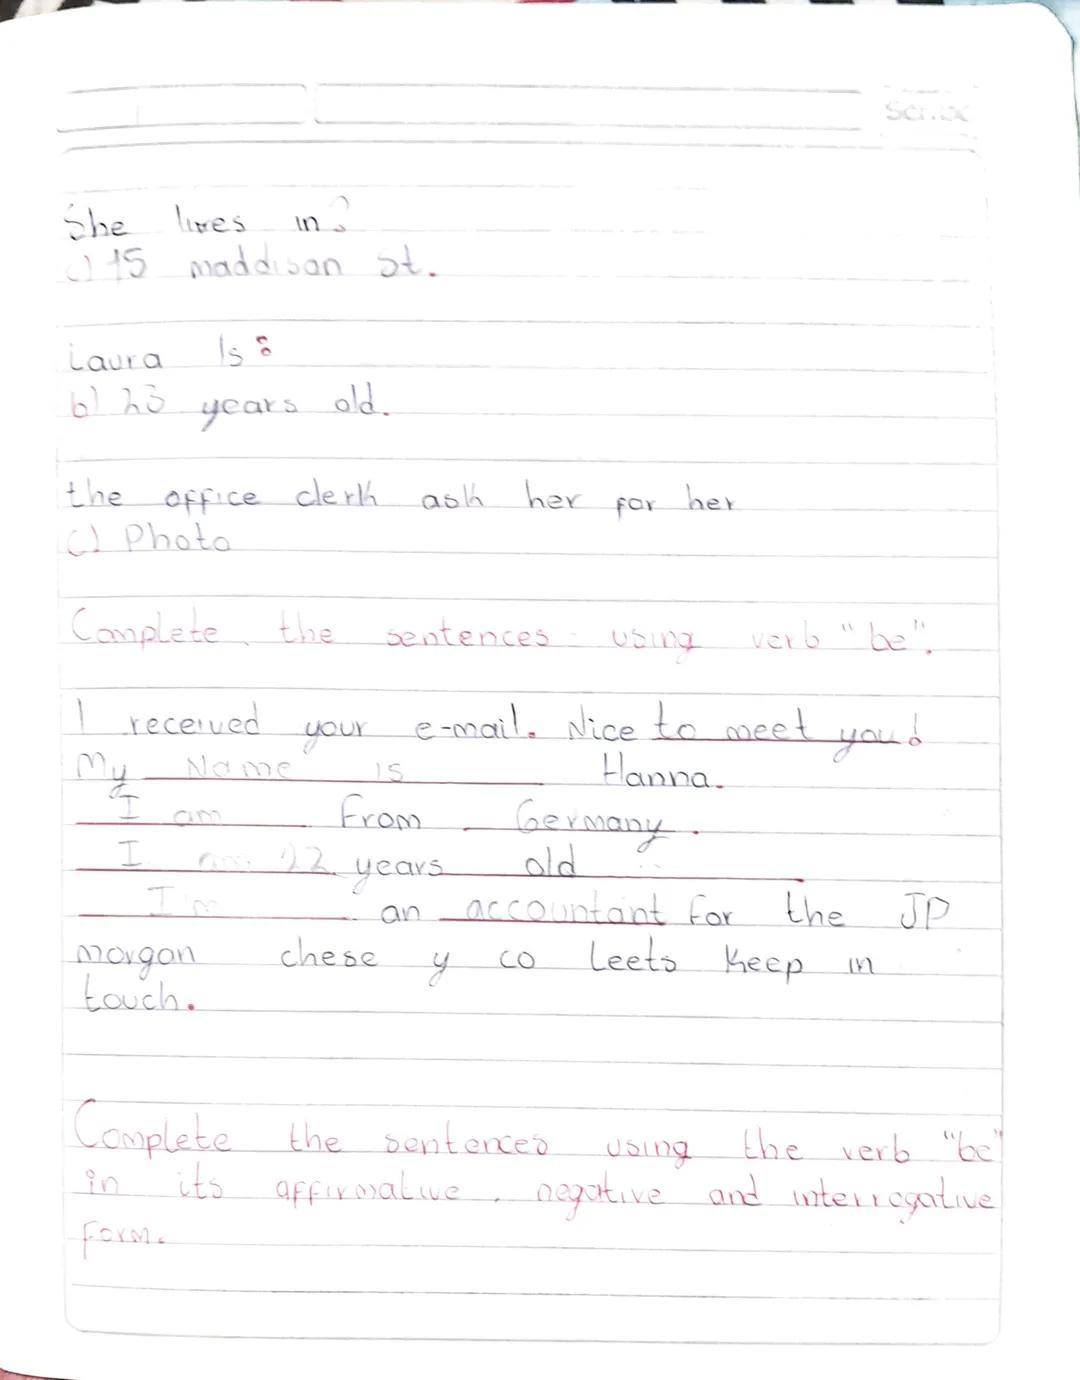 Scribe
She lives in?
c) 15 maddison st.
Laura Is:
b) 23 years old.
the office clerk ask her for her
c) Photo
Complete the sentences using verb "be".
I received your e-mail. Nice to meet you!
My Name is Hanna.
I am From Germany.
I am 22 years old
I'm an accountant for the JP
morgan chese y co Leets Keep in
touch.
Complete the sentences using the verb "be"
in its affirmative, negative and interrogative
form.